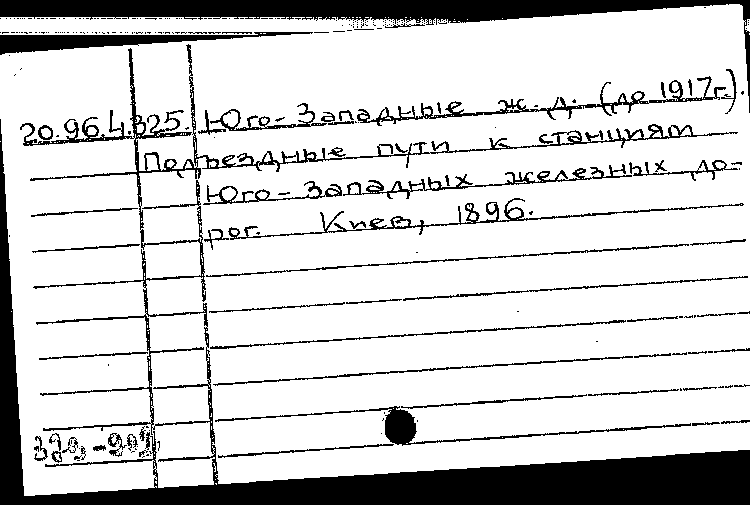 20.96.4.325. Юго-Западные ж. д. (до 1917г.).
Подъездные пути к станциям
Юго-Западных железных до-
рог. Киев, 1896.